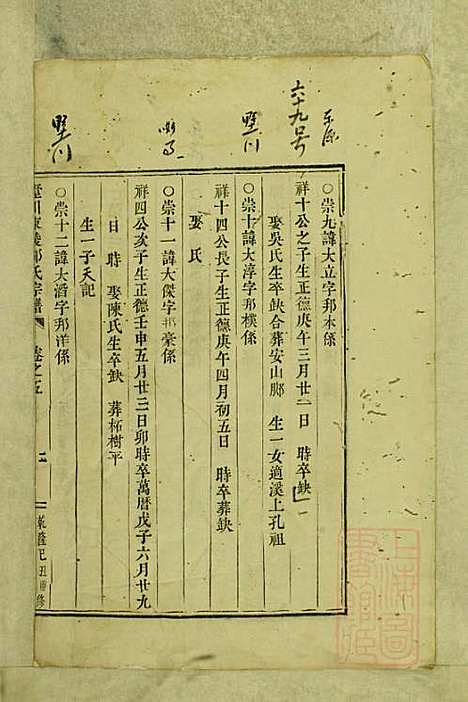 六十九号
〇崇九諱大立字邦本係
祥十公之子生正德庚午三月廿二日 時卒缺
娶吳氏生卒缺合葬安山腳 生一女適溪上孔祖
〇崇十諱大淳字邦樸係
祥十四公長子生正德庚午四月初五日 時卒葬缺
娶 氏
〇崇十一諱大傑字邦豪係
祥四公次子生正德壬申五月廿二日卯時卒萬曆戊子六月廿九
日 時 娶陳氏生卒缺 葬柘樹平
生一子天記
〇崇十二諱大滔字邦洋係
氏宗譜 卷之五 二 乾隆己丑重修